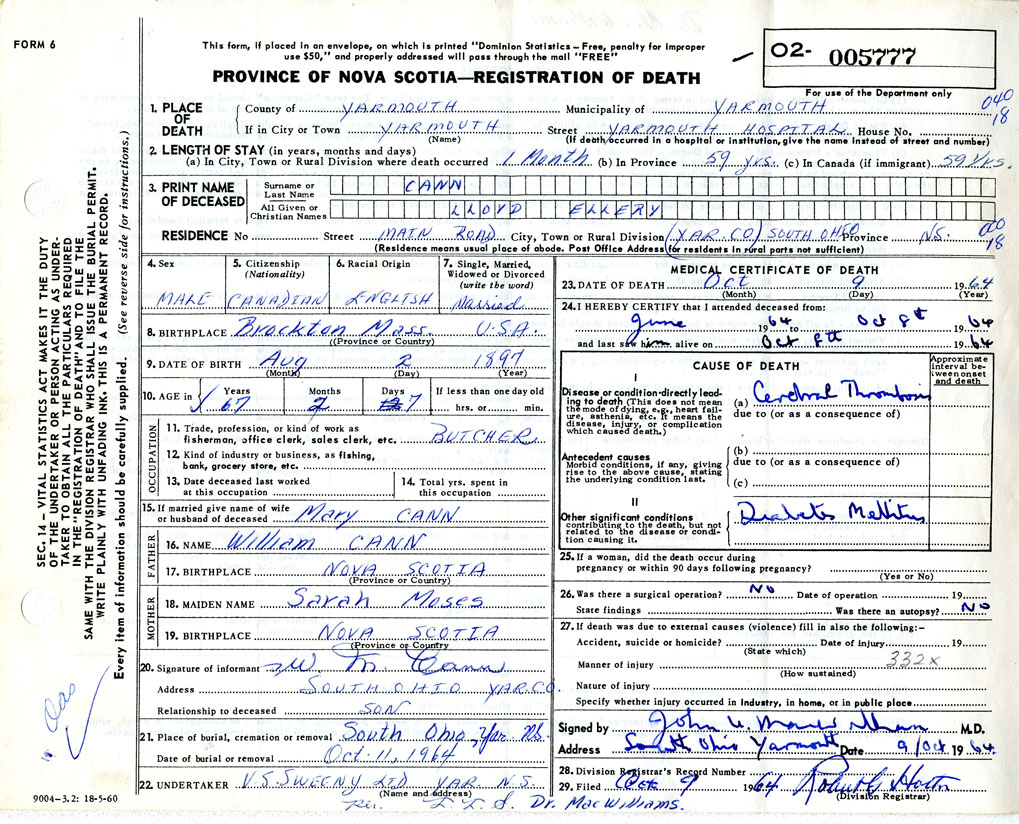 FORM 6
This form, if placed in an envelope, on which is printed "Dominion Statistics – Free, penalty for improper
use $50," and properly addressed will pass through the mail "FREE"
PROVINCE OF NOVA SCOTIA—REGISTRATION OF DEATH
02- 005777
For use of the Department only
SEC. 14 – VITAL STATISTICS ACT MAKES IT THE DUTY
OF THE UNDERTAKER OR PERSON ACTING AS UNDER-
TAKER TO OBTAIN ALL THE PARTICULARS REQUIRED
IN THE "REGISTRATION OF DEATH" AND TO FILE THE
SAME WITH THE DIVISION REGISTRAR WHO SHALL ISSUE THE BURIAL PERMIT.
WRITE PLAINLY WITH UNFADING INK. THIS IS A PERMANENT RECORD.
Every item of information should be carefully supplied. (See reverse side for instructions.)
1. PLACE OF DEATH
County of YARMOUTH Municipality of YARMOUTH
040
18
If in City or Town YARMOUTH Street YARMOUTH HOSPITAL House No.
(Name) (If death occurred in a hospital or institution, give the name instead of street and number)
2. LENGTH OF STAY (in years, months and days)
(a) In City, Town or Rural Division where death occurred 1 Month (b) In Province 59 yrs. (c) In Canada (if immigrant) 59 Yrs.
3. PRINT NAME OF DECEASED
Surname or Last Name CANN
All Given or Christian Names LLOYD ELLERY
RESIDENCE No Street MAIN ROAD City, Town or Rural Division (YAR. CO) SOUTH OHIO Province N.S.
18
(Residence means usual place of abode. Post Office Address for residents in rural parts not sufficient)
4. Sex MALE
5. Citizenship (Nationality) CANADIAN
6. Racial Origin ENGLISH
7. Single, Married, Widowed or Divorced (write the word) Married
8. BIRTHPLACE Brockton Mass U.S.A.
(Province or Country)
9. DATE OF BIRTH Aug 2 1897
(Month) (Day) (Year)
10. AGE in Years 67 Months 2 Days 7 If less than one day old hrs. or min.
OCCUPATION
11. Trade, profession, or kind of work as fisherman, office clerk, sales clerk, etc. BUTCHER
12. Kind of industry or business, as fishing, bank, grocery store, etc.
13. Date deceased last worked at this occupation
14. Total yrs. spent in this occupation
15. If married give name of wife or husband of deceased Mary CANN
FATHER
16. NAME William CANN
17. BIRTHPLACE NOVA SCOTIA
(Province or Country)
MOTHER
18. MAIDEN NAME Sarah Moses
19. BIRTHPLACE NOVA SCOTIA
(Province or Country
20. Signature of informant W M Cann
Address SOUTH OHIO YAR. CO.
Relationship to deceased SON
21. Place of burial, cremation or removal South Ohio, Yar NS.
Date of burial or removal Oct. 11, 1964
22. UNDERTAKER V.S. SWEENY LTD YAR. N.S.
(Name and address)
MEDICAL CERTIFICATE OF DEATH
23. DATE OF DEATH Oct 9 1964
(Month) (Day) (Year)
24. I HEREBY CERTIFY that I attended deceased from:
June 1964 to Oct 8th 1964
and last saw him alive on Oct 8th 1964
CAUSE OF DEATH
Approximate interval between onset and death
I
Disease or condition directly leading to death (This does not mean the mode of dying, e.g., heart failure, asthenia, etc. It means the disease, injury, or complication which caused death.)
(a) Cerebral Thrombosis
due to (or as a consequence of)
Antecedent causes
Morbid conditions, if any, giving rise to the above cause, stating the underlying condition last.
(b)
due to (or as a consequence of)
(c)
II
Other significant conditions
contributing to the death, but not related to the disease or condition causing it.
Diabetes Mellitus
25. If a woman, did the death occur during
pregnancy or within 90 days following pregnancy?
(Yes or No)
26. Was there a surgical operation? NO Date of operation 19
State findings Was there an autopsy? NO
27. If death was due to external causes (violence) fill in also the following:–
Accident, suicide or homicide? Date of injury 19
(State which)
332X
Manner of injury
(How sustained)
Nature of injury
Specify whether injury occurred in industry, in home, or in public place
Signed by John M.D.
Address South Ohio Yarmouth Date 9/Oct 1964
28. Division Registrar's Record Number
29. Filed Oct 9 1964 Robert G Horton
(Division Registrar)
9004-3.2: 18-5-60
Dr. MacWilliams.